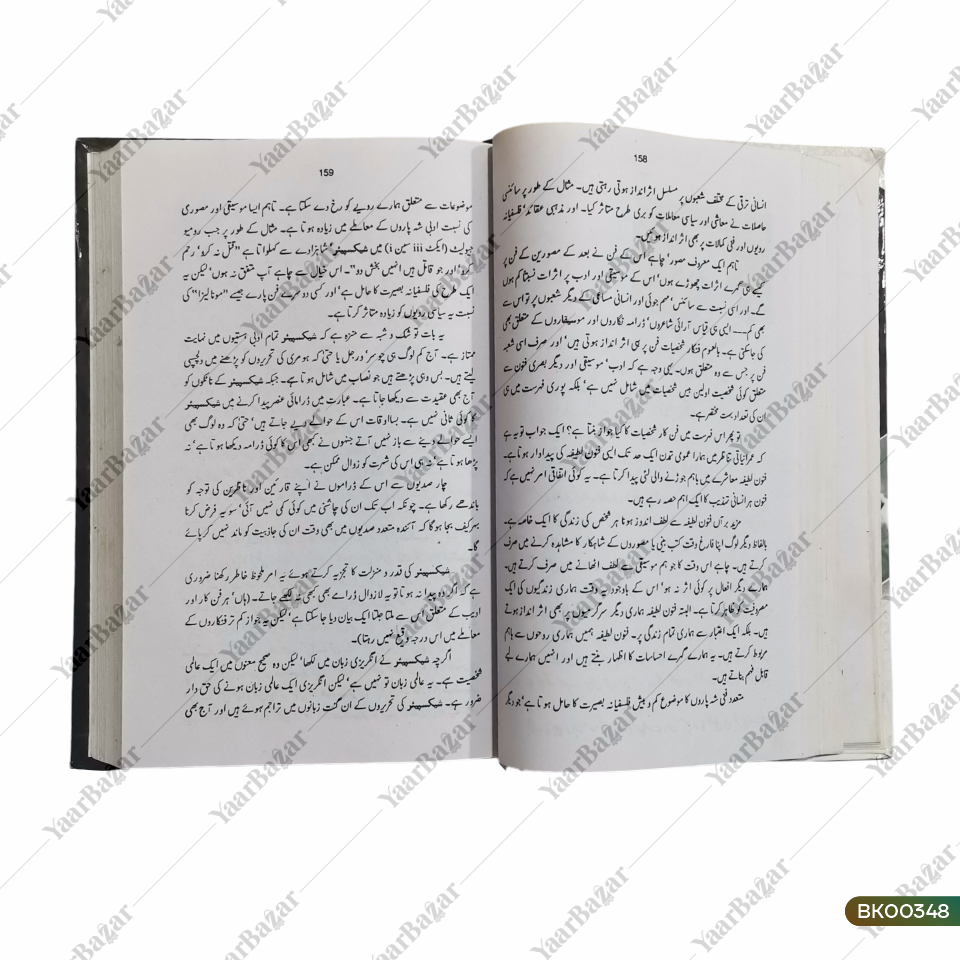 158
انسانی ترقی کے مختلف شعبوں پر مسلسل اثر انداز ہوتی رہتی ہیں۔ مثال کے طور پر سائنسی
حاصلات نے معاشی اور سیاسی معاملات کو بری طرح متاثر کیا۔ اور مذہبی عقائد' فلسفیانہ
رویوں اور فنی کمالات پر بھی اثر انداز ہوئیں۔
تاہم ایک معروف مصور' چاہے اس کے فن نے بعد کے مصورین کے فن پر
کیسے ہی گہرے اثرات چھوڑے ہوں' اس کے موسیقی اور ادب پر اثرات نسبتاً کم ہوں
گے۔ اور اسی نسبت سے سائنس' مہم جوئی اور انسانی مساعی کے دیگر شعبوں پر تو اس سے
بھی کم۔۔۔ ایسی ہی قیاس آرائی شاعروں' ڈرامہ نگاروں اور موسیقاروں کے متعلق بھی
کی جاسکتی ہے۔ بالعموم فنکار شخصیات فن پر ہی اثر انداز ہوتی ہیں' اور صرف اسی شعبہ
فن پر جس سے وہ متعلق ہوں۔ یہی وجہ ہے کہ ادب' موسیقی اور دیگر بصری فنون سے
متعلق کوئی شخصیت اولین بیس شخصیات میں شامل نہیں ہے' بلکہ پوری فہرست میں ہی
ان کی تعداد بہت مختصر ہے۔
تو پھر اس فہرست میں فن کار شخصیات کا کیا جواز بنتا ہے؟ ایک جواب تو یہ ہے
کہ عمرانیاتی تناظر میں ہمارا عمومی تمدن ایک حد تک ایسی فنون لطیفہ کی پیداوار ہوتا ہے۔
فنون لطیفہ معاشرے میں باہم جوڑنے والی لئی پیدا کرتا ہے۔ یہ کوئی اتفاقی امر نہیں ہے کہ
فنون ہر انسانی تہذیب کا ایک اہم حصہ رہے ہیں۔
مزید برآں فنون لطیفہ سے لطف اندوز ہونا ہر شخص کی زندگی کا ایک خاصہ ہے۔
بالفاظ دیگر لوگ اپنا فارغ وقت کتب بینی یا مصوروں کے شاہکار کا مشاہدہ کرنے میں صرف
کرتے ہیں۔ چاہے اس وقت کا جو ہم موسیقی سے لطف اٹھانے میں صرف کرتے ہیں۔
ہمارے دیگر افعال پر کوئی اثر نہ ہو' اس کے باوجود یہ وقت ہماری زندگیوں کی ایک
مصروفیت کو ظاہر کرتا ہے۔ البتہ فنون لطیفہ ہماری دیگر سرگرمیوں پر بھی اثر انداز ہوتے
ہیں۔ بلکہ ایک اعتبار سے ہماری تمام زندگی پر۔ فنون لطیفہ ہمیں ہماری روحوں سے باہم
مربوط کرتے ہیں۔ یہ ہمارے گہرے احساسات کا اظہار بنتے ہیں اور انہیں ہمارے لیے
قابل فہم بناتے ہیں۔
متعدد فنی شہ پاروں کا موضوع کم و بیش فلسفیانہ بصیرت کا حامل ہوتا ہے' جو دیگر
159
موضوعات سے متعلق ہمارے رویے کو رخ دے سکتا ہے۔ تاہم ایسا موسیقی اور مصوری
کی نسبت ادبی شہ پاروں کے معاملے میں زیادہ ہوتا ہے۔ مثال کے طور پر جب رومیو
جولیٹ (ایکٹ iii سین i) میں شیکسپیئر' شاہزادے سے کہلواتا ہے "قتل نہ کرو' رحم
کرو' اور جو قاتل ہیں انہیں بخش دو"۔ اس خیال سے چاہے آپ متفق نہ ہوں' لیکن یہ
ایک طرح کی فلسفیانہ بصیرت کا حامل ہے' اور کسی دوسرے فن پارے جیسے "مونالیزا" کی
نسبت یہ سیاسی رویوں کو زیادہ متاثر کرتا ہے۔
یہ بات تو شک و شبہ سے منزہ ہے کہ شیکسپیئر تمام ادبی ہستیوں میں نہایت
ممتاز ہے۔ آج کم لوگ ہی چوسر' ورجل یا حتیٰ کہ ہومر کی تحریروں کو پڑھنے میں دلچسپی
لیتے ہیں۔ بس وہی پڑھتے ہیں جو نصاب میں شامل ہوتا ہے۔ جبکہ شیکسپیئر کے ناٹکوں کو
آج بھی عقیدت سے دیکھا جاتا ہے۔ عبارت میں ڈرامائی عنصر پیدا کرنے میں شیکسپیئر
کا کوئی ثانی نہیں ہے۔ بسا اوقات اس کے حوالے دیے جاتے ہیں' حتیٰ کہ وہ لوگ بھی
ایسے حوالے دینے سے باز نہیں آتے جنہوں نے کبھی اس کا کوئی ڈرامہ دیکھا ہوتا ہے' نہ
پڑھا ہوتا ہے' نہ ہی اس کی شہرت کو زوال ممکن ہے۔
چار صدیوں سے اس کے ڈراموں نے اپنے قارئین اور ناظرین کی توجہ کو
باندھے رکھا ہے۔ چونکہ اب تک ان کی چاشنی میں کوئی کمی نہیں آئی' سو یہ فرض کرنا
بہرکیف بجا ہوگا کہ آئندہ متعدد صدیوں میں بھی وقت ان کی جاذبیت کو ماند نہیں کر پائے
گا۔
شیکسپیئر کی قدر و منزلت کا تجزیہ کرتے ہوئے یہ امر ملحوظ خاطر رکھنا ضروری
ہے کہ اگر وہ پیدا نہ ہوتا تو یہ لازوال ڈرامے بھی کبھی نہ لکھے جاتے۔ (ہاں' ہر فن کار اور
ادیب کے متعلق اس سے ملتا جلتا ایک بیان دیا جا سکتا ہے' لیکن یہ جواز کم تر فنکاروں کے
معاملے میں اس درجہ وقیع نہیں رہتا)۔
اگرچہ شیکسپیئر نے انگریزی زبان میں لکھا' لیکن وہ صحیح معنوں میں ایک عالمی
شخصیت ہے۔ یہ عالمی زبان تو نہیں ہے' لیکن انگریزی ایک عالمی زبان ہونے کی حق دار
ضرور ہے۔ شیکسپیئر کی تحریروں کے ان گنت زبانوں میں تراجم ہوئے ہیں اور آج بھی
YaarBazar
BK00348